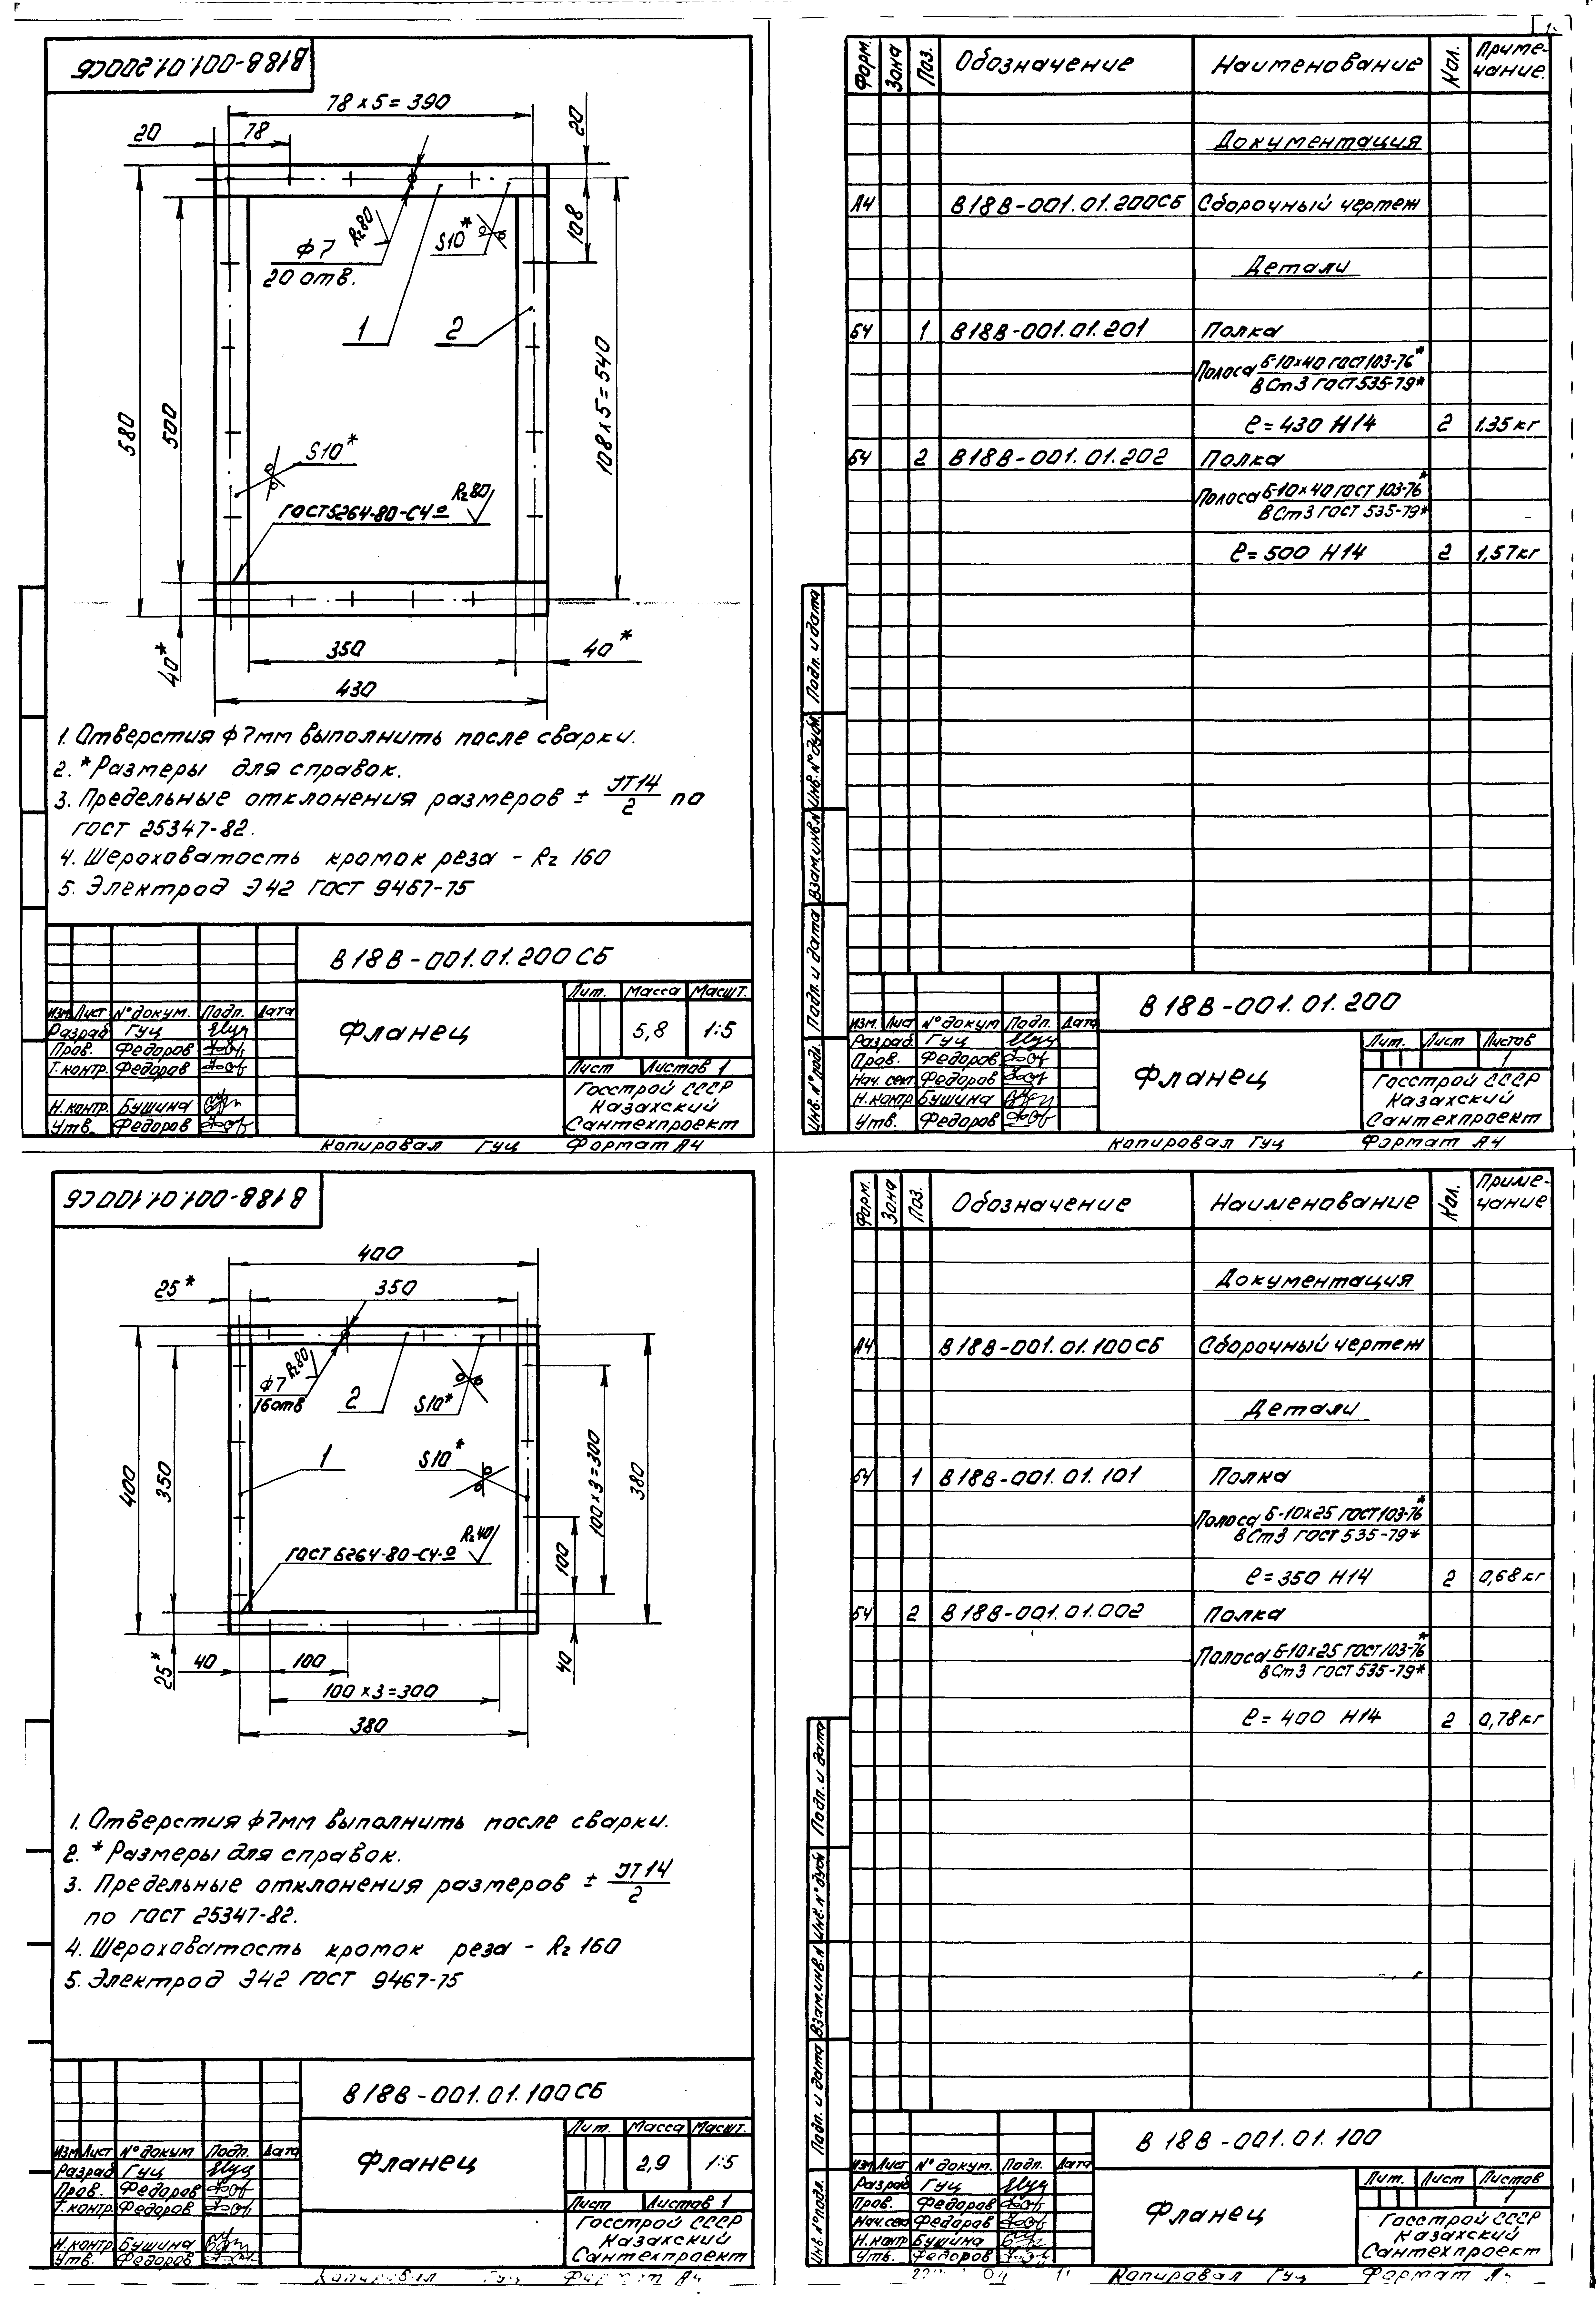 В18В-001.01.200СБ
78 × 5 = 390
20
78
20
108
Rz80
φ7
20 отв.
S10*
1
2
580
500
108 × 5 = 540
S10*
ГОСТ 5264-80-С4
Rz80
40*
350
40*
430
1. Отверстия φ7мм выполнить после сварки.
2. *Размеры для справок.
3. Предельные отклонения размеров ± JT14/2 по
ГОСТ 25347-82.
4. Шероховатость кромок реза - Rz 160
5. Электрод Э42 ГОСТ 9467-75
В18В-001.01.200СБ
Изм Лист № докум. Подп. Дата
Разраб Гуц
Пров. Федоров
Т.контр. Федоров
Н.контр. Бушина
Утв. Федоров
Фланец
Лит. Масса Масшт.
5,8 1:5
Лист Листов 1
Госстрой СССР
Казахский
Сантехпроект
Копировал Гуц Формат А4
Форм. Зона Поз. Обозначение Наименование Кол. Приме-
чание.
Документация
А4 В18В-001.01.200СБ Сборочный чертеж
Детали
БЧ 1 В18В-001.01.201 Полка
Полоса Б-10×40 ГОСТ 103-76*
ВСт3 ГОСТ 535-79*
ℓ=430 H14 2 1.35кг
БЧ 2 В18В-001.01.202 Полка
Полоса Б-10×40 ГОСТ 103-76*
ВСт3 ГОСТ 535-79*
ℓ=500 H14 2 1,57кг
Подп. и дата
Инв. № дубл.
Взам.инв.№
Подп. и дата
Инв. № подл.
В18В-001.01.200
Изм. Лист № докум Подп. Дата
Разраб. Гуц
Пров. Федоров
Нач. сект. Федоров
Н.контр Бушина
Утв. Федоров
Фланец
Лит. Лист Листов
1
Госстрой СССР
Казахский
Сантехпроект
Копировал Гуц Формат А4
В18В-001.01.100СБ
400
25* 350
φ7 Rz80
16отв
2
S10*
1
S10*
400
350
100 × 3 = 300
380
ГОСТ 5264-80-С4
Rz40
100
25*
40
100
40
100 × 3 = 300
380
1. Отверстия φ7мм выполнить после сварки.
2. *Размеры для справок.
3. Предельные отклонения размеров ± JT14/2
по ГОСТ 25347-82.
4. Шероховатость кромок реза - Rz 160
5. Электрод Э42 ГОСТ 9467-75
В18В-001.01.100СБ
Изм Лист № докум Подп. Дата
Разраб Гуц
Пров. Федоров
Т.контр Федоров
Н.контр Бушина
Утв. Федоров
Фланец
Лит. Масса Масшт.
2,9 1:5
Лист Листов 1
Госстрой СССР
Казахский
Сантехпроект
Копировал Гуц Формат А4
Форм. Зона Поз. Обозначение Наименование Кол. Приме-
чание
Документация
А4 В18В-001.01.100СБ Сборочный чертеж
Детали
БЧ 1 В18В-001.01.101 Полка
Полоса Б-10×25 ГОСТ 103-76*
ВСт3 ГОСТ 535-79*
ℓ=350 H14 2 0,68кг
БЧ 2 В18В-001.01.002 Полка
Полоса Б-10×25 ГОСТ 103-76*
ВСт3 ГОСТ 535-79*
ℓ=400 H14 2 0,78кг
Подп. и дата
Инв. № дубл
Взам.инв.№
Подп. и дата
Инв. № подл.
В18В-001.01.100
Изм Лист № докум. Подп. Дата
Разраб Гуц
Пров. Федоров
Нач.сек Федоров
Н.контр Бушина
Утв. Федоров
Фланец
Лит. Лист Листов
1
Госстрой СССР
Казахский
Сантехпроект
Копировал Гуц Формат